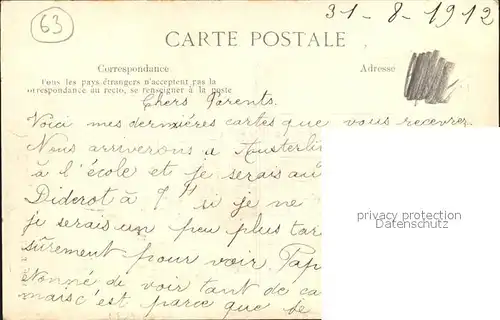 63
31-8-1912
CARTE POSTALE
Correspondance
Adresse
Tous les pays étrangers n'acceptent pas la
correspondance au recto, se renseigner à la poste
Chers Parents.
Voici mes dernières cartes que vous recevrez
Nous arriverons a Austerli
à l'école et je serais au
Diderot à 7H si je ne
je serais un peu plus tar
sûrement pour voir Pap
étonné de voir tant de ca
mais c'est parce que je
privacy protection
Datenschutz